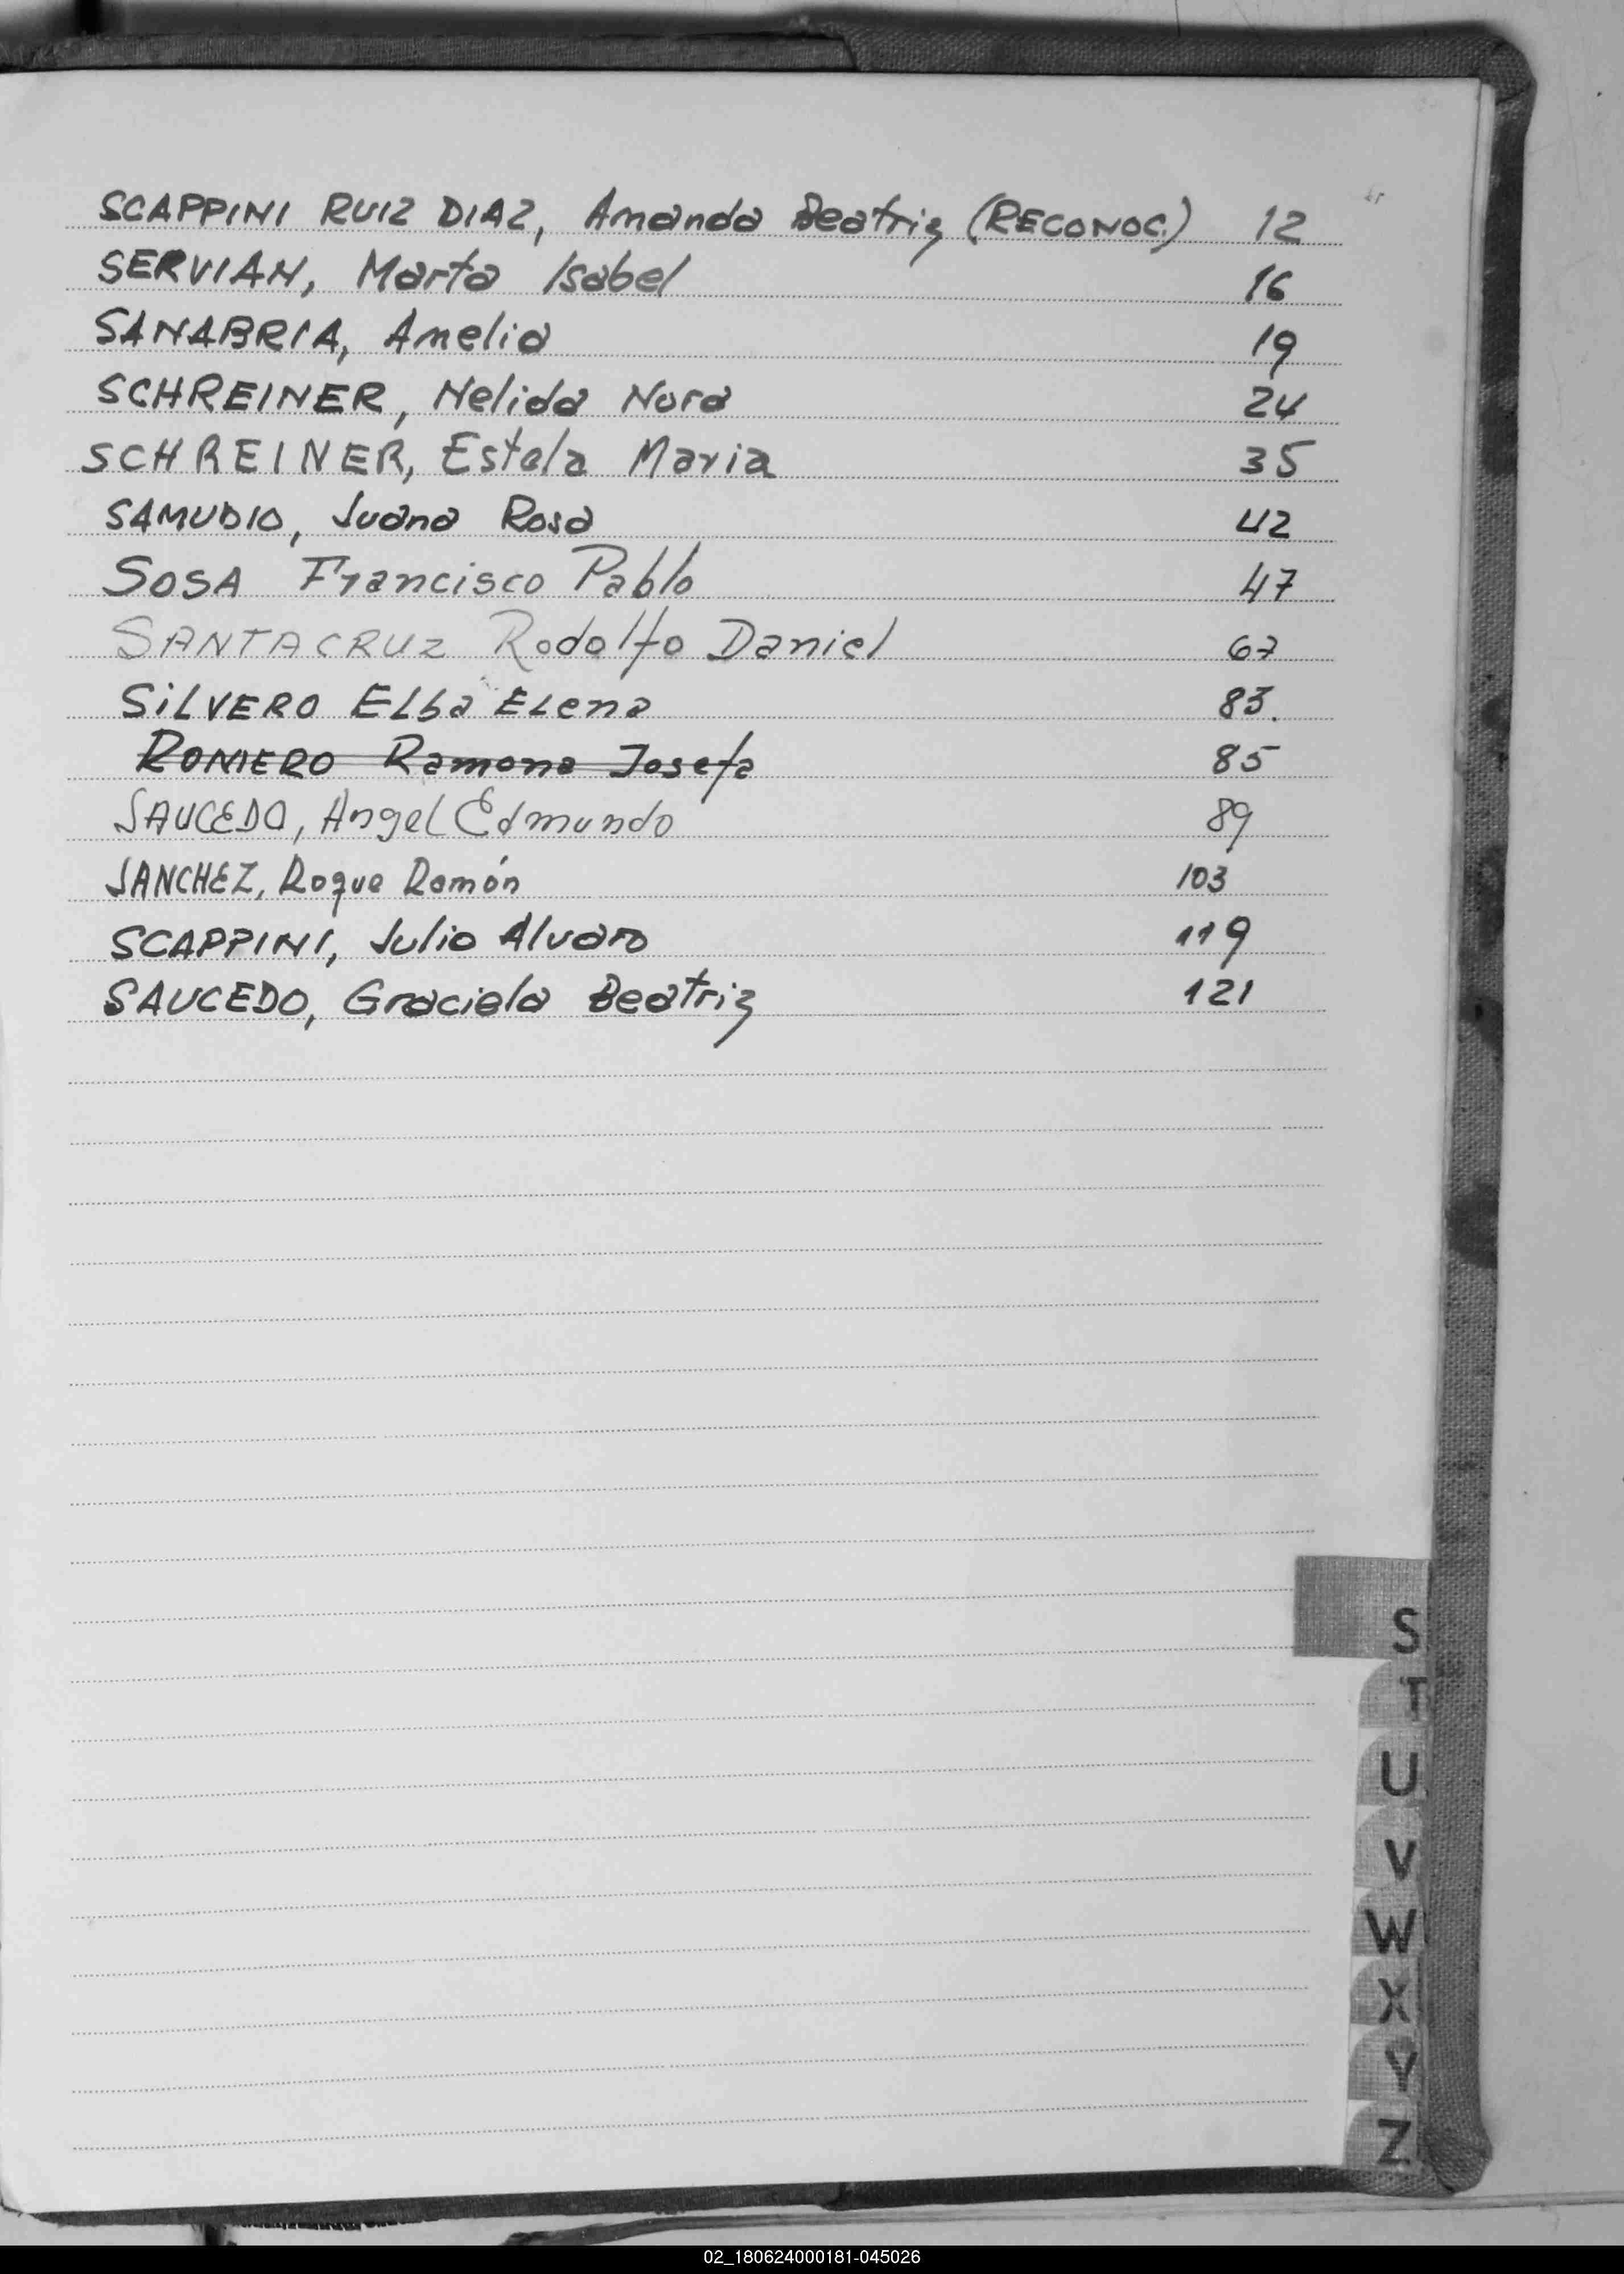 SCAPPINI RUIZ DIAZ, Amanda Beatriz (RECONOC.) 12
SERVIAN, Marta Isabel 16
SANABRIA, Amelia 19
SCHREINER, Nelida Nora 24
SCHREINER, Estela Maria 35
SAMUDIO, Juana Rosa 42
SOSA Francisco Pablo 47
SANTACRUZ Rodolfo Daniel 67
SiLVERO ELba ELena 83.
ROMERO Ramona Josefa 85
SAUCEDO, Angel Edmundo 89
SANCHEZ, Roque Ramón 103
SCAPPINI, Julio Alvaro 119
SAUCEDO, Graciela Beatriz 121
S
T
U
V
W
X
Y
Z
02_180624000181-045026